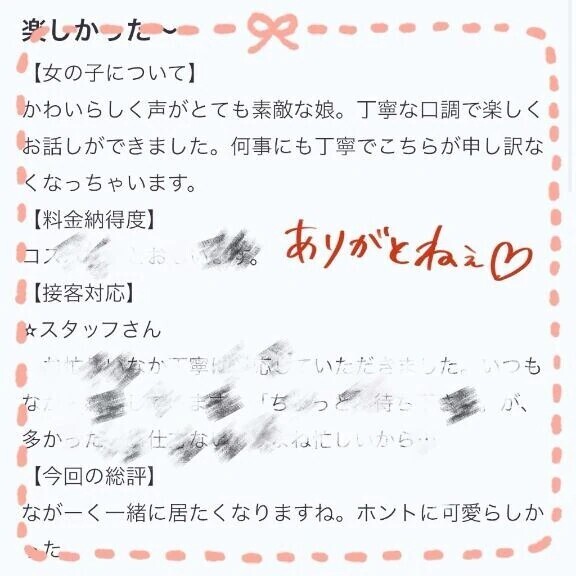 楽しかった～
【女の子について】
かわいらしく声がとても素敵な娘。丁寧な口調で楽しく
お話しができました。何事にも丁寧でこちらが申し訳な
くなっちゃいます。
【料金納得度】
コス
ありがとねぇ♡
【接客対応】
☆スタッフさん
丁寧に していただきました。いつも
なが ます 「ちょっと 待ち 」が、
多かった 仕 ない 忙しいから…
【今回の総評】
ながーく一緒に居たくなりますね。ホントに可愛らしか
った